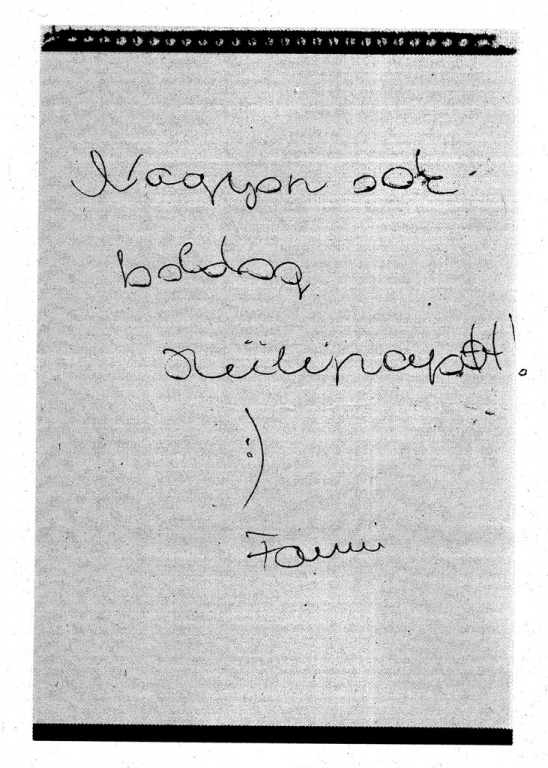 Nagyon sok
boldog
szülinapot!
:)
Fanni